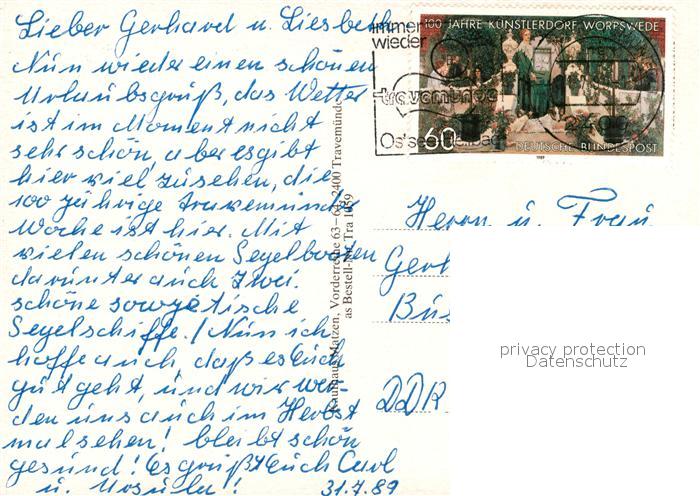 Lieber Gerhard u. Liesbeth
Nun wieder einen schönen
Urlaubsgruß, das Wetter
ist im Moment nicht
sehr schön, aber es gibt
hier viel zu sehen, die
100 jährige Travemünder
Woche ist hier. Mit
vielen schönen Segelbooten
darunter auch zwei
schöne sowjetische
Segelschiffe. / Nun ich
hoffe auch, daß es Euch
gut geht, und wir wer-
den uns auch im Herbst
mal sehen! bleibt schön
gesund! Es grüßt Euch Carl
u. Ursula!
31.7.89
Kaufhaus Matzen, Vorderreihe 63-, 2400 Travemünde
as Bestell-Nr. Tra 1059
immer
wieder
travemünde
Ostseeheilbad
100 JAHRE KÜNSTLERDORF WORPSWEDE
60
DEUTSCHE BUNDESPOST
1989
Herrn u. Frau
Gerh
DDR
privacy protection
Datenschutz